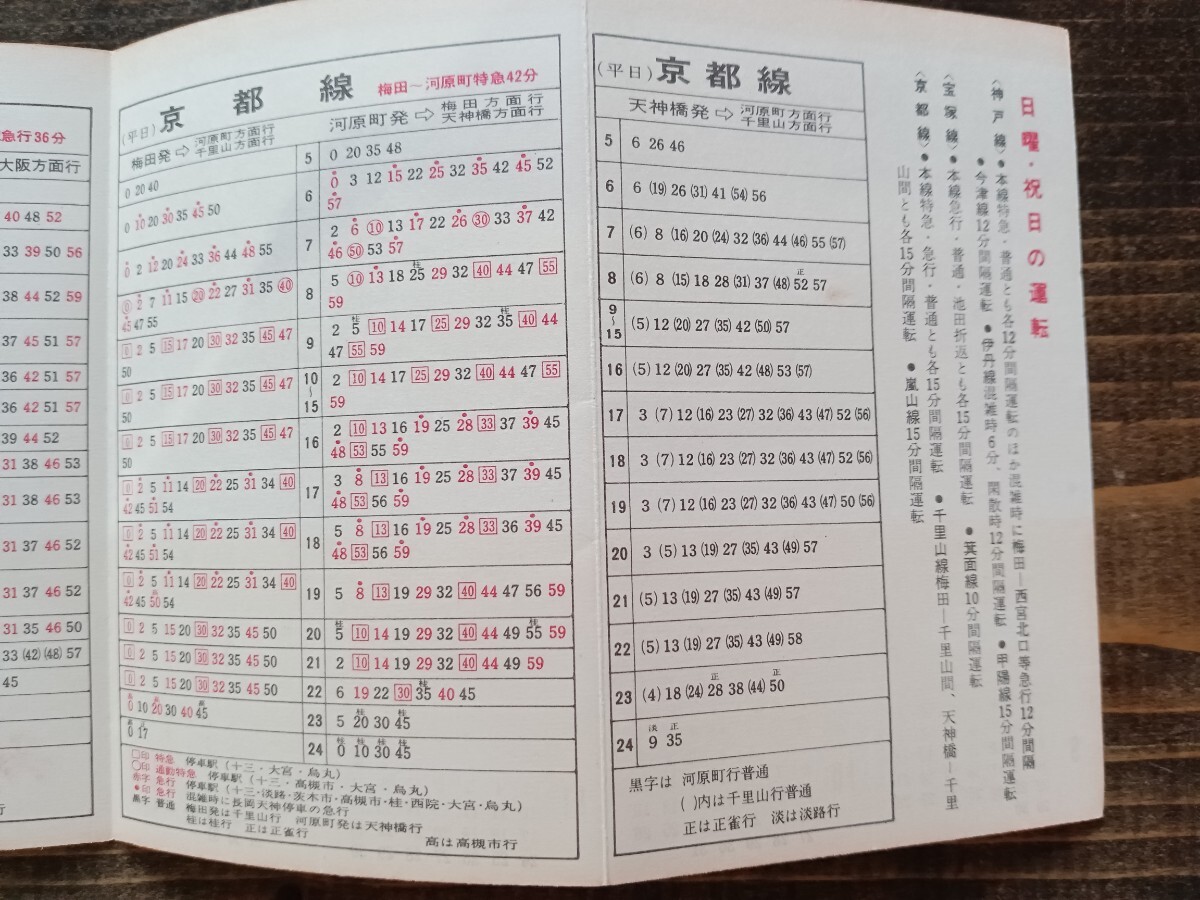 急行36分
大阪方面行
40 48 52
33 39 50 56
38 44 52 59
37 45 51 57
36 42 51 57
36 42 51 57
39 44 52
31 38 46 53
31 38 46 53
31 37 46 52
31 37 46 52
31 35 46 50
33 (42) (48) 57
45
(平日) 京都線 梅田〜河原町特急42分
梅田発⇨河原町方面行
千里山方面行
河原町発⇨梅田方面行
天神橋方面行
0 20 40
5
0 20 35 48
0 10 20 30 35 45 50
6
0 3 12 15 22 25 32 35 42 45 52
57
0 2 12 20 24 33 36 44 48 55
7
2 6 ⑩ 13 17 22 26 ㉚ 33 37 42
46 ㊿ 53 57
⓪ 2 7 11 15 ⑳ 22 27 31 35 ㊵
45 47 55
8
5 ⑩ 13 18 桂25 29 32 [40] 44 47 [55]
59
[0] 2 5 [15] 17 20 [30] 32 35 [45] 47
50
9
2 桂5 [10] 14 17 [25] 29 32 桂35 [40] 44
47 [55] 59
[0] 2 5 [15] 17 20 [30] 32 35 [45] 47
50
10〜15
2 [10] 14 17 [25] 29 32 [40] 44 47 [55]
59
[0] 2 5 [15] 17 20 [30] 32 35 [45] 47
50
16
2 [10] 13 16 19 25 28 [33] 37 39 45
48 [53] 55 59
[0] 2 5 11 14 [20] 22 25 31 34 [40]
42 45 51 54
17
3 8 [13] 16 19 25 28 [33] 37 39 45
48 [53] 56 59
[0] 2 5 11 14 [20] 22 25 31 34 [40]
42 45 51 54
18
5 8 [13] 16 19 25 28 [33] 36 39 45
48 [53] 56 59
[0] 2 5 11 14 [20] 22 25 31 34 [40]
42 45 50 54
19
5 8 [13] 19 29 32 [40] 44 47 56 59
[0] 2 5 15 20 [30] 32 35 45 50
20
桂5 [10] 14 19 29 32 [40] 44 49 桂55 59
[0] 2 5 15 20 [30] 32 35 45 50
21
2 [10] 14 19 29 32 [40] 44 49 59
[0] 2 5 15 20 [30] 32 35 45 50
22
6 19 22 [30] 桂35 40 45
0 10 20 30 40 45
23
5 桂20 30 桂45
0 17
24
桂0 桂10 桂30 桂45
□印 特急 停車駅(十三・大宮・烏丸)
○印 通勤特急 停車駅(十三・高槻市・大宮・烏丸)
赤字 急行 停車駅(十三・淡路・茨木市・高槻市・桂・西院・大宮・烏丸)
●印 急行 混雑時に長岡天神停車の急行
黒字 普通 梅田発は千里山行 河原町発は天神橋行
桂は桂行 正は正雀行 高は高槻市行
(平日) 京都線
天神橋発⇨河原町方面行
千里山方面行
5 6 26 46
6 6 (19) 26 (31) 41 (54) 56
7 (6) 8 (16) 20 (24) 32 (36) 44 (46) 55 (57)
8 (6) 8 (15) 18 28 (31) 37 (48) 正52 57
9〜15 (5) 12 (20) 27 (35) 42 (50) 57
16 (5) 12 (20) 27 (35) 42 (48) 53 (57)
17 3 (7) 12 (16) 23 (27) 32 (36) 43 (47) 52 (56)
18 3 (7) 12 (16) 23 (27) 32 (36) 43 (47) 52 (56)
19 3 (7) 12 (16) 23 (27) 32 (36) 43 (47) 50 (56)
20 3 (5) 13 (19) 27 (35) 43 (49) 57
21 (5) 13 (19) 27 (35) 43 (49) 57
22 (5) 13 (19) 27 (35) 43 (49) 58
23 (4) 18 (24) 正28 38 (44) 正50
24 淡9 正35
黒字は 河原町行普通
( )内は千里山行普通
正は正雀行 淡は淡路行
日曜・祝日の運転
〈神戸線〉●本線特急・普通とも各12分間隔運転のほか混雑時に梅田―西宮北口等急行12分間隔
●今津線12分間隔運転 ●伊丹線混雑時6分、閑散時12分間隔運転 ●甲陽線15分間隔運転
〈宝塚線〉●本線急行・普通・池田折返とも各15分間隔運転 ●箕面線10分間隔運転
〈京都線〉●本線特急・急行・普通とも各15分間隔運転 ●千里山線梅田―千里山間、天神橋―千里
山間とも各15分間隔運転 ●嵐山線15分間隔運転